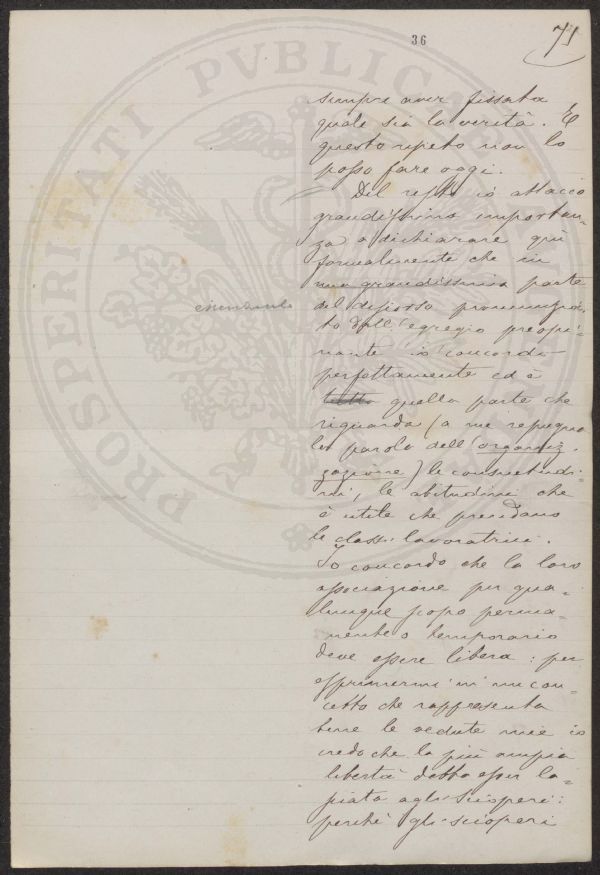 36
71
PROSPERITATI PVBLICAE
sempre aver fissata
quale sia la verità. E
questo ripeto non lo
posso fare oggi.
Del resto io attacco
grandissima importan-
za a dichiarare qui
formalmente che in
una grandissima parte
del discorso pronunzia-
to dall'egregio preopi-
nante io concordo
perfettamente ed è
tutta quella parte che
riguarda (a me repugna
la parola dell'organiz-
zazione) le consuetudi-
ni, le abitudini che
è utile che prendano
le classi lavoratrici.
Io concordo che la loro
associazione per qua-
lunque scopo perma-
nente o temporario
deve essere libera: per
esprimermi in un con-
cetto che rappresenta
bene le vedute mie io
credo che la più ampia
libertà debba esser la-
sciata agli scioperi:
perchè gli scioperi